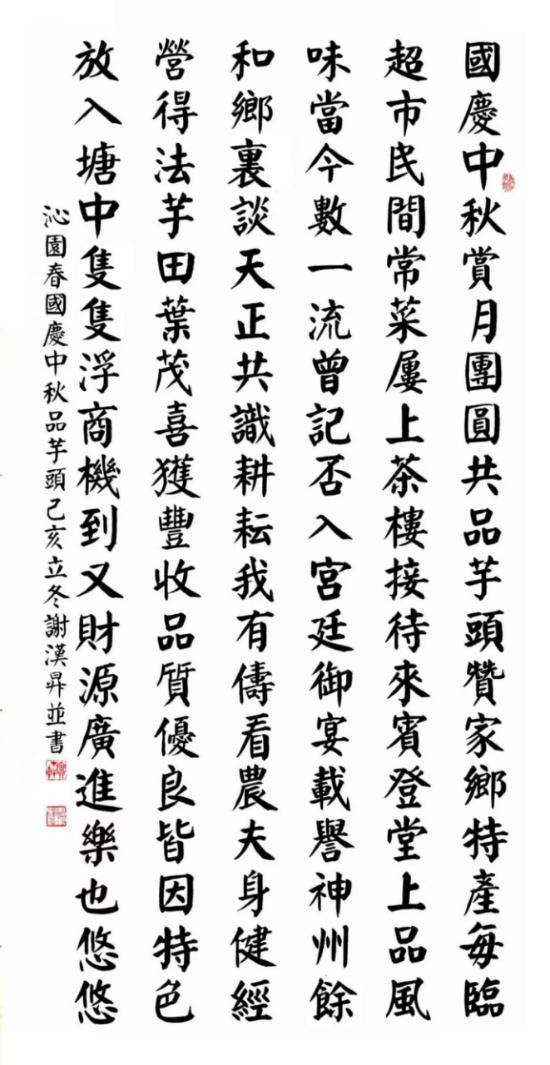 國慶中秋賞月團圓共品芋頭贊家鄉特產每臨
超市民間常菜屢上茶樓接待來賓登堂上品風
味當今數一流曾記否入宮廷御宴載譽神州餘
和鄉裏談天正共識耕耘我有儔看農夫身健經
營得法芋田葉茂喜獲豐收品質優良皆因特色
放入塘中隻隻浮商機到又財源廣進樂也悠悠
沁園春國慶中秋品芋頭己亥立冬謝漢昇並書